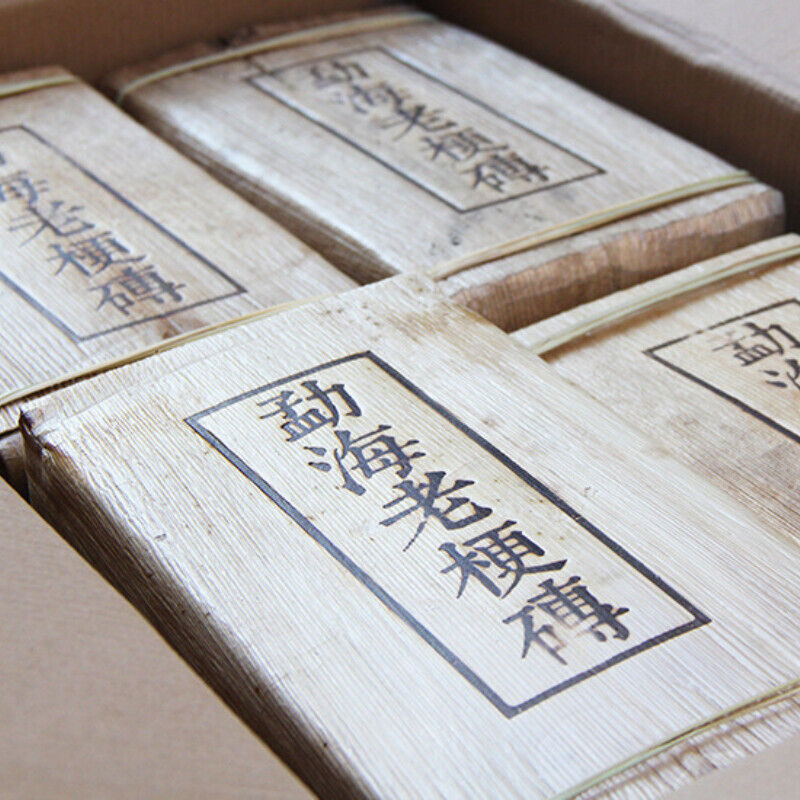 勐海老梗磚
勐海老梗磚
海老梗磚
勐海